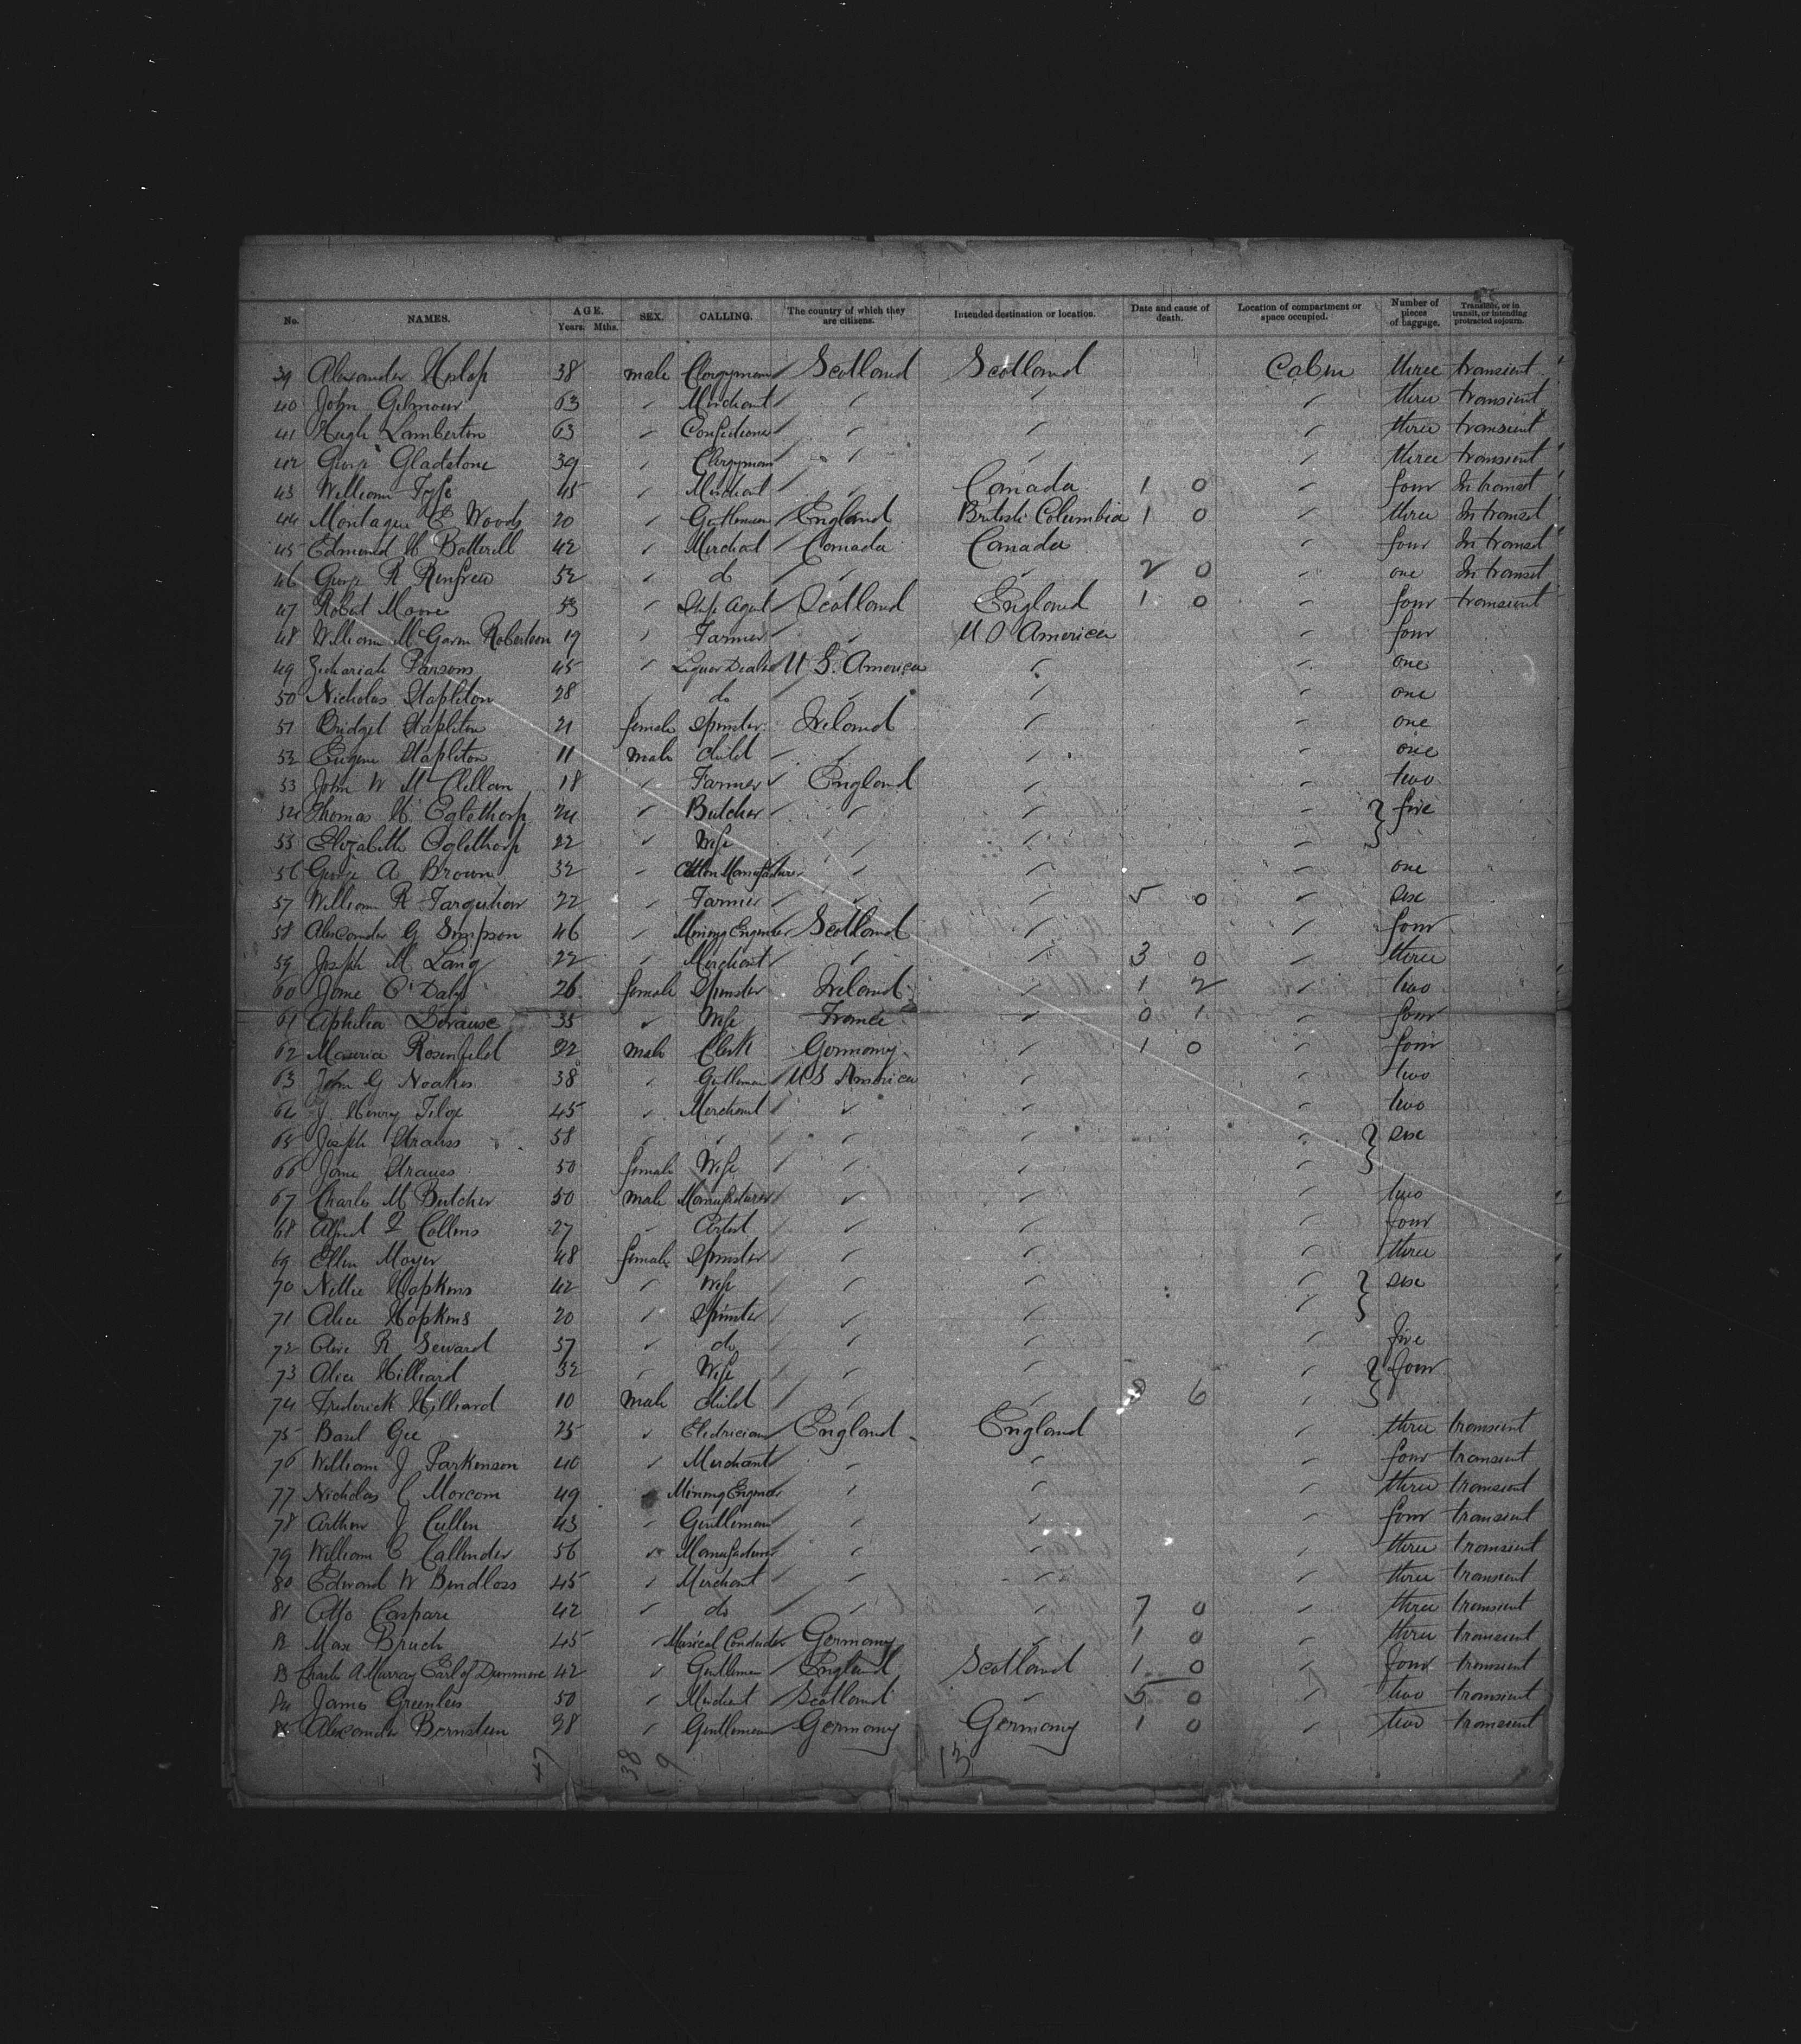 No. NAMES. AGE. Years. Mths. SEX. CALLING. The country of which they are citizens. Intended destination or location. Date and cause of death. Location of compartment or space occupied. Number of pieces of baggage. Transient, or in transit, or intending protracted sojourn.
39 Alexander Hislop 38 male Clergyman Scotland Scotland Cabin three transient
40 John Gilmour 63 " Merchant " " " three transient
41 Hugh Lamberton 63 " Confectioner " " " three transient
42 George Gladstone 39 " Clergyman " " " three transient
43 William Fyfe 45 " Merchant " Canada 1 0 " four In transit
44 Montague C Woods 20 " Gentleman England British Columbia 1 0 " three In transit
45 Edmund H Botterell 42 " Merchant Canada Canada " four In transit
46 George R Renfrew 52 " do " " 2 0 " one In transit
47 Robert Morris 53 " Ship Agent Scotland England 1 0 " four transient
48 William McGavin Robertson 19 " Farmer " U S America " four
49 Zechariah Parsons 45 " Liquor Dealer U S. America " " one
50 Nicholas Stapleton 28 " do " " " one
51 Bridget Stapleton 21 female Spinster Ireland " " one
52 Eugene Stapleton 11 male Child " " " one
53 John W McClellan 18 " Farmer England " " two
54 Thomas H Eglethorp 24 " Butcher " " " } five
55 Elizabeth Oglethorp 22 " Wife " " " }
56 George A Brown 32 " Cotton Manufacturer " " " one
57 William R Farquhar 22 " Farmer " " 5 0 " six
58 Alexander G Simpson 46 " Mining Engineer Scotland " " four
59 Joseph M Lang 22 " Merchant " " 3 0 " three
60 Jane O'Daly 26 female Spinster Ireland " 1 2 " two
61 35 " Wife France " 0 1 " four
62 Rosenfeld 22 male Clerk Germany " 1 0 " four
63 John G Noakes 38 " Gentleman U S America " two
64 J. Henry 45 " Merchant " " " two
65 Joseph Strauss 58 " " " " " } six
66 Jane Strauss 50 female Wife " " " }
67 Charles M Butcher 50 male Manufacturer " " " two
68 Alfred Q Collins 27 " Artist " " " four
69 Ellen Moyer 48 female Spinster " " " three
70 Nellie Hopkins 42 " Wife " " " } six
71 Alice Hopkins 20 " Spinster " " " }
72 Olive R Seward 57 " do " " " five
73 Alice Hilliard 32 " Wife " " " } four
74 Frederick Hilliard 10 male Child " " 8 6 " }
75 Basil Gee 25 " Electrician England England " three transient
76 William J Parkinson 40 " Merchant " " " four transient
77 Nicholas C Morcom 49 " Mining Engineer " " " three transient
78 Arthur J Cullen 43 " Gentleman " " " four transient
79 William C Callender 56 " Manufacturer " " " three transient
80 Edward W Bindloss 45 " Merchant " " " three transient
81 Otto Caspari 42 " do " " 7 0 " three transient
82 Max Bruch 45 " Musical Conductor Germany " 1 0 " three transient
83 Charles A Murray Earl of Dunmore 42 " Gentleman England Scotland 1 0 " four transient
84 James Greenlees 50 " Merchant Scotland " 5 0 " two transient
85 Alexander Bernstein 38 " Gentleman Germany Germany 1 0 " two transient
47 38 9 13